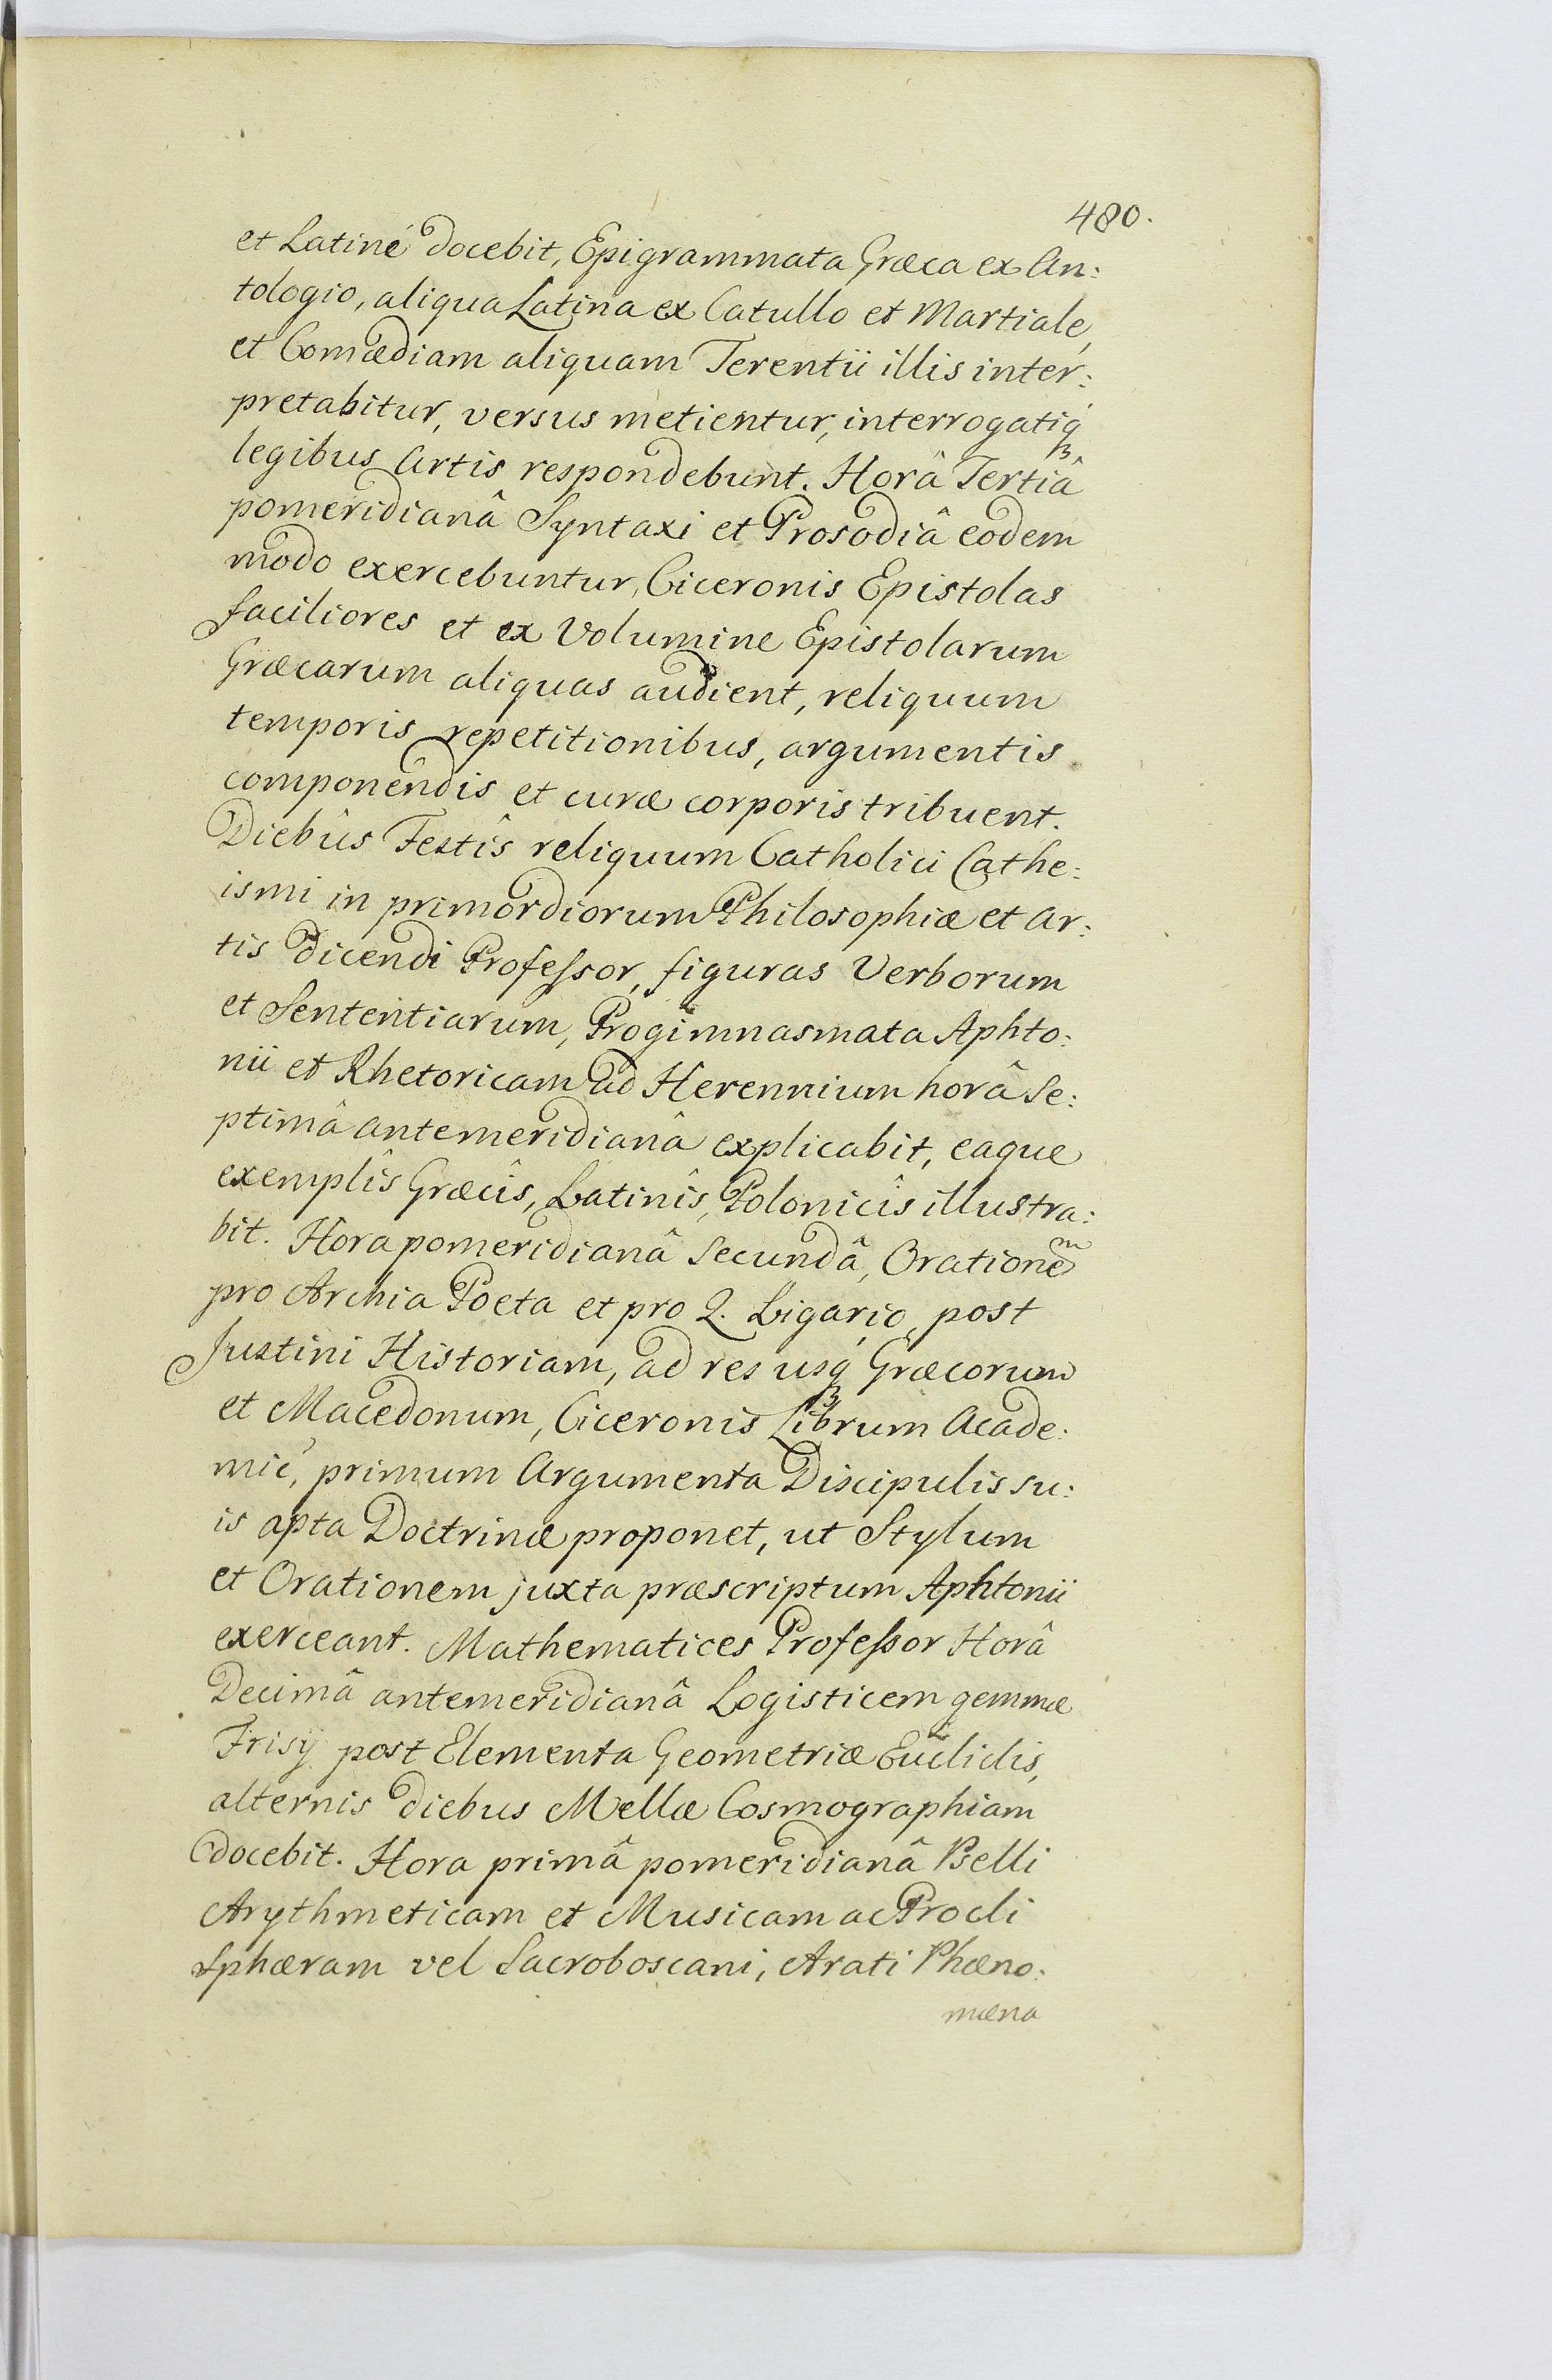 480.
et Latiné docebit, Epigrammata Græca ex An:
tologio, aliqua Latina ex Catullo et Martiale,
et Comædiam aliquam Terentii illis inter:
pretabitur, versus metientur, interrogatiq́ꝫ
legibus Artis respondebunt. Horâ Tertiâ
pomeridianâ Syntaxi et Prosodiâ eodem
modo exercebuntur, Ciceronis Epistolas
faciliores et ex Volumine Epistolarum
Græcarum aliquas audient, reliquum
temporis repetitionibus, argumentis
componendis et curæ corporis tribuent.
Diebûs Festîs reliquum Catholici Cathe:
ismi in primordiorum Philosophiæ et Ar:
tis dicendi Profeſsor, figuras Verborum
et Sententiarum, Progimnasmata Aphto:
nii et Rhetoricam ad Herennium horâ Se:
ptimâ antemeridianâ explicabit, eaque
exemplîs Græcîs, Latinîs, Polonicîs illustra:
bit. Hora pomeridianâ Secundâ, Orationem
pro Archia Poeta et pro Q. Ligario, post
Justini Historiam, ad res usq́ꝫ Græcorum
et Macedonum, Ciceronis Librum Acade:
mic, primum Argumenta Discipulis su:
is apta Doctrinæ proponet, ut Stylum
et Orationem juxta præscriptum Aphtonii
exerceant. Mathematices Profeſsor Horâ
Decimâ antemeridianâ Logisticem gemmæ
Frisÿ post Elementa Geometriæ Euclidis,
alternis diebus Mellæ Cosmographiam
docebit. Hora primâ pomeridianâ Pselli
Arythmeticam et Musicam ac Procli
Sphæram vel Sacroboscani, Arati Phæno:
mæna